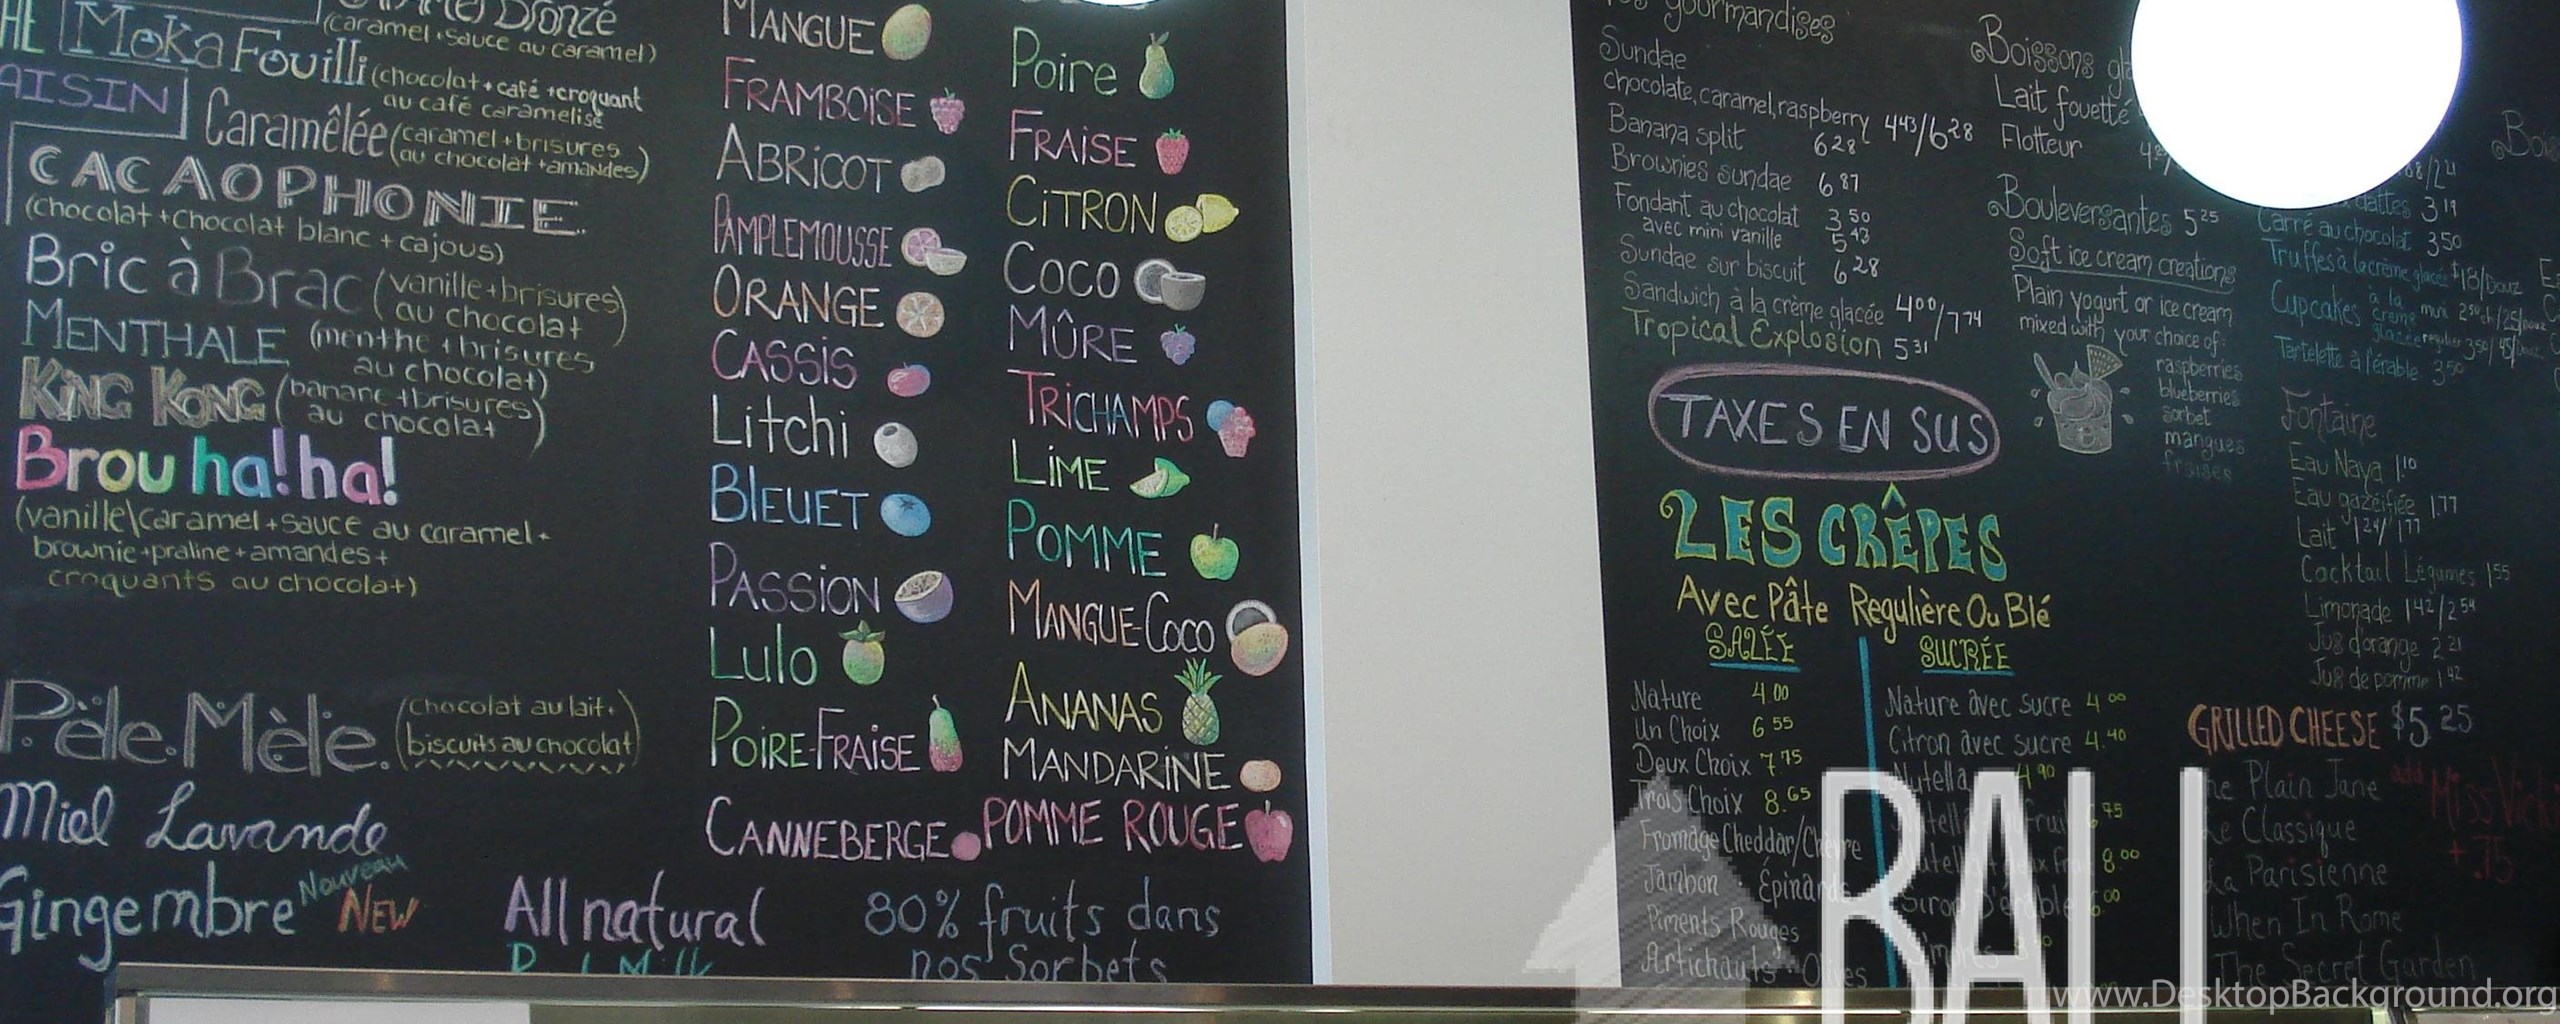 Bronzé
(caramel+sauce au caramel)
Moka Fouilli (chocolat+café+croquant
au café caramelisé
AISIN
Caramêlée (caramel+brisures
au chocolat+amandes)
CACAOPHONIE
(chocolat+chocolat blanc+cajous)
Bric à Brac (vanille+brisures)
au chocolat
MENTHALE (menthe+brisures
au chocolat)
KING KONG (banane+brisures)
au chocolat
Brou ha! ha!
(vanille\caramel+sauce au caramel+
brownie+praline+amandes+
croquants au chocolat)
Pèle.Mèle. (chocolat au lait+
biscuits au chocolat)
Miel Lavande
Gingembre Nouveau
NEW
All natural
80% fruits dans
nos Sorbets
MANGUE
FRAMBOISE
ABRICOT
PAMPLEMOUSSE
ORANGE
CASSIS
Litchi
BLEUET
PASSION
Lulo
POIRE-FRAISE
CANNEBERGE
Poire
FRAISE
CITRON
COCO
MÛRE
TRICHAMPS
LIME
POMME
MANGUE-COCO
ANANAS
MANDARINE
POMME ROUGE
gourmandises
Sundae
chocolate, caramel, raspberry 4 43/6 28
Banana split 6 28
Brownies sundae 6 87
Fondant au chocolat 3 50
avec mini vanille 5 43
Sundae sur biscuit 6 28
Sandwich à la crème glacée 4 00/7 74
Tropical Explosion 5 31
TAXES EN SUS
LES CRÊPES
Avec Pâte Regulière Ou Blé
SALÉE
Nature 4.00
Un Choix 6 55
Deux Choix 7.75
Trois Choix 8.65
Fromage Cheddar/Chèvre
Jambon Épinards
Piments Rouges
Artichauts Olives
SUCRÉE
Nature avec sucre 4 00
Citron avec sucre 4.40
Nutella 4 90
8 00
Boissons
Lait fouetté
Flotteur
Bouleversantes 5 25
Soft ice cream creations
Plain yogurt or ice cream
mixed with your choice of:
raspberries
blueberries
sorbet
mangues
fraises
dattes 3 19
Carré au chocolat 3 50
Truffes à la crème glacée $18/Douz
Cupcakes à la crème glacée
Tartelette à l'érable 3 50
Fontaine
Eau Naya 1 10
Eau gazéifiée 1.77
Lait 1 24/1 77
Cocktail Légumes 1 55
Limonade 1 42/2 54
Jus d'orange 2 21
Jus de pomme 1 42
GRILLED CHEESE $5 25
The Plain Jane
Le Classique
La Parisienne
When In Rome
The Secret Garden
add
Miss Vicki
+.75
BALI
www.DesktopBackground.org